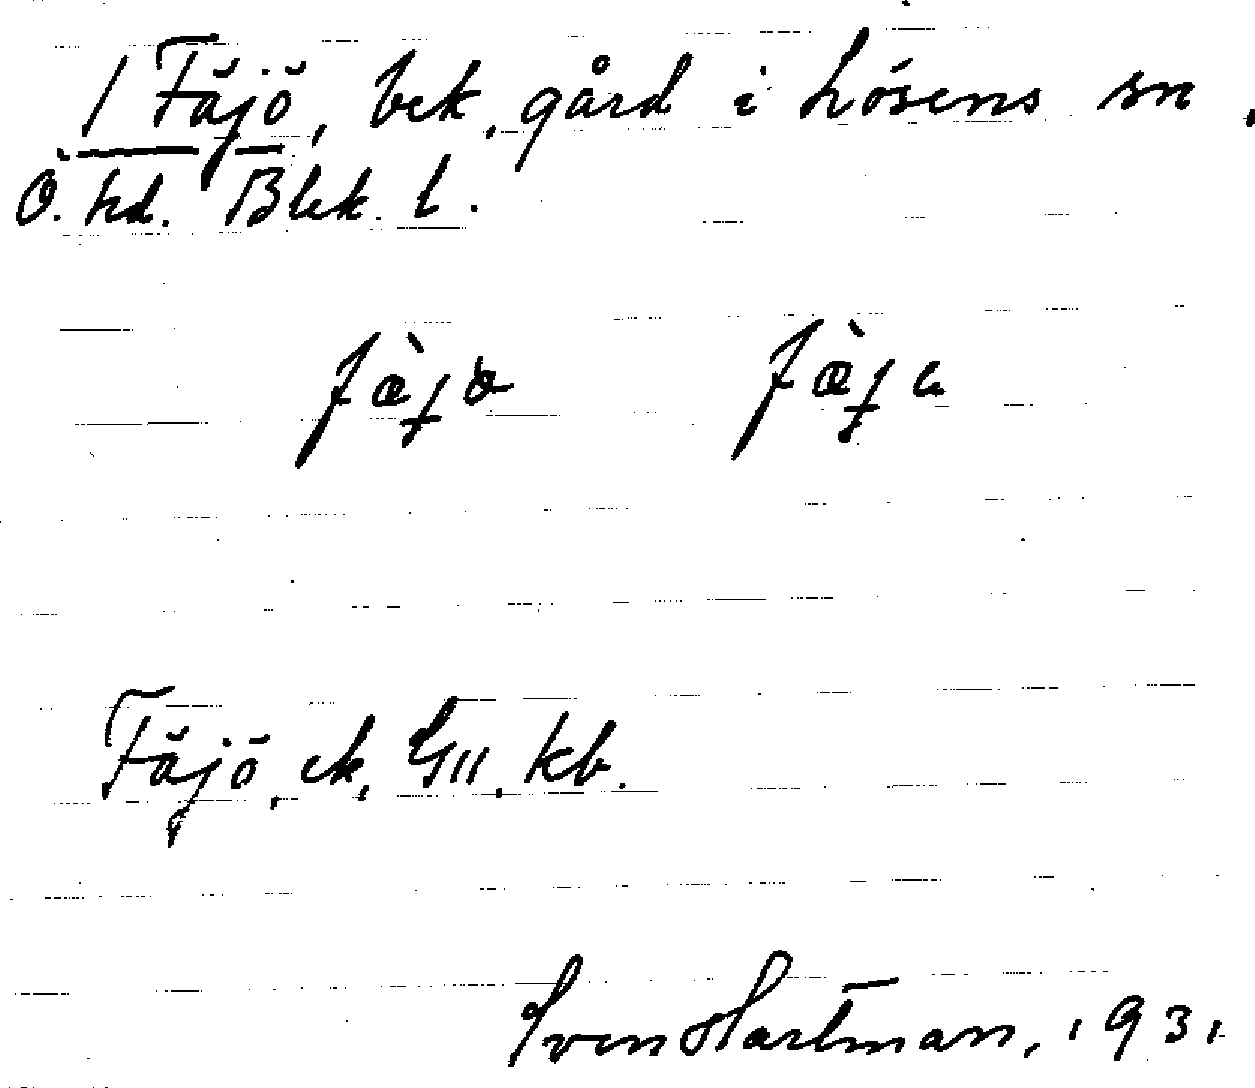 1 Fäjö, bek. gård i Lösens sn,
Ö. hd. Blek. l.
fæ̀jo fæ̀ja
Fäjö, ek, GII, kb.
Sven Hartman, 1931